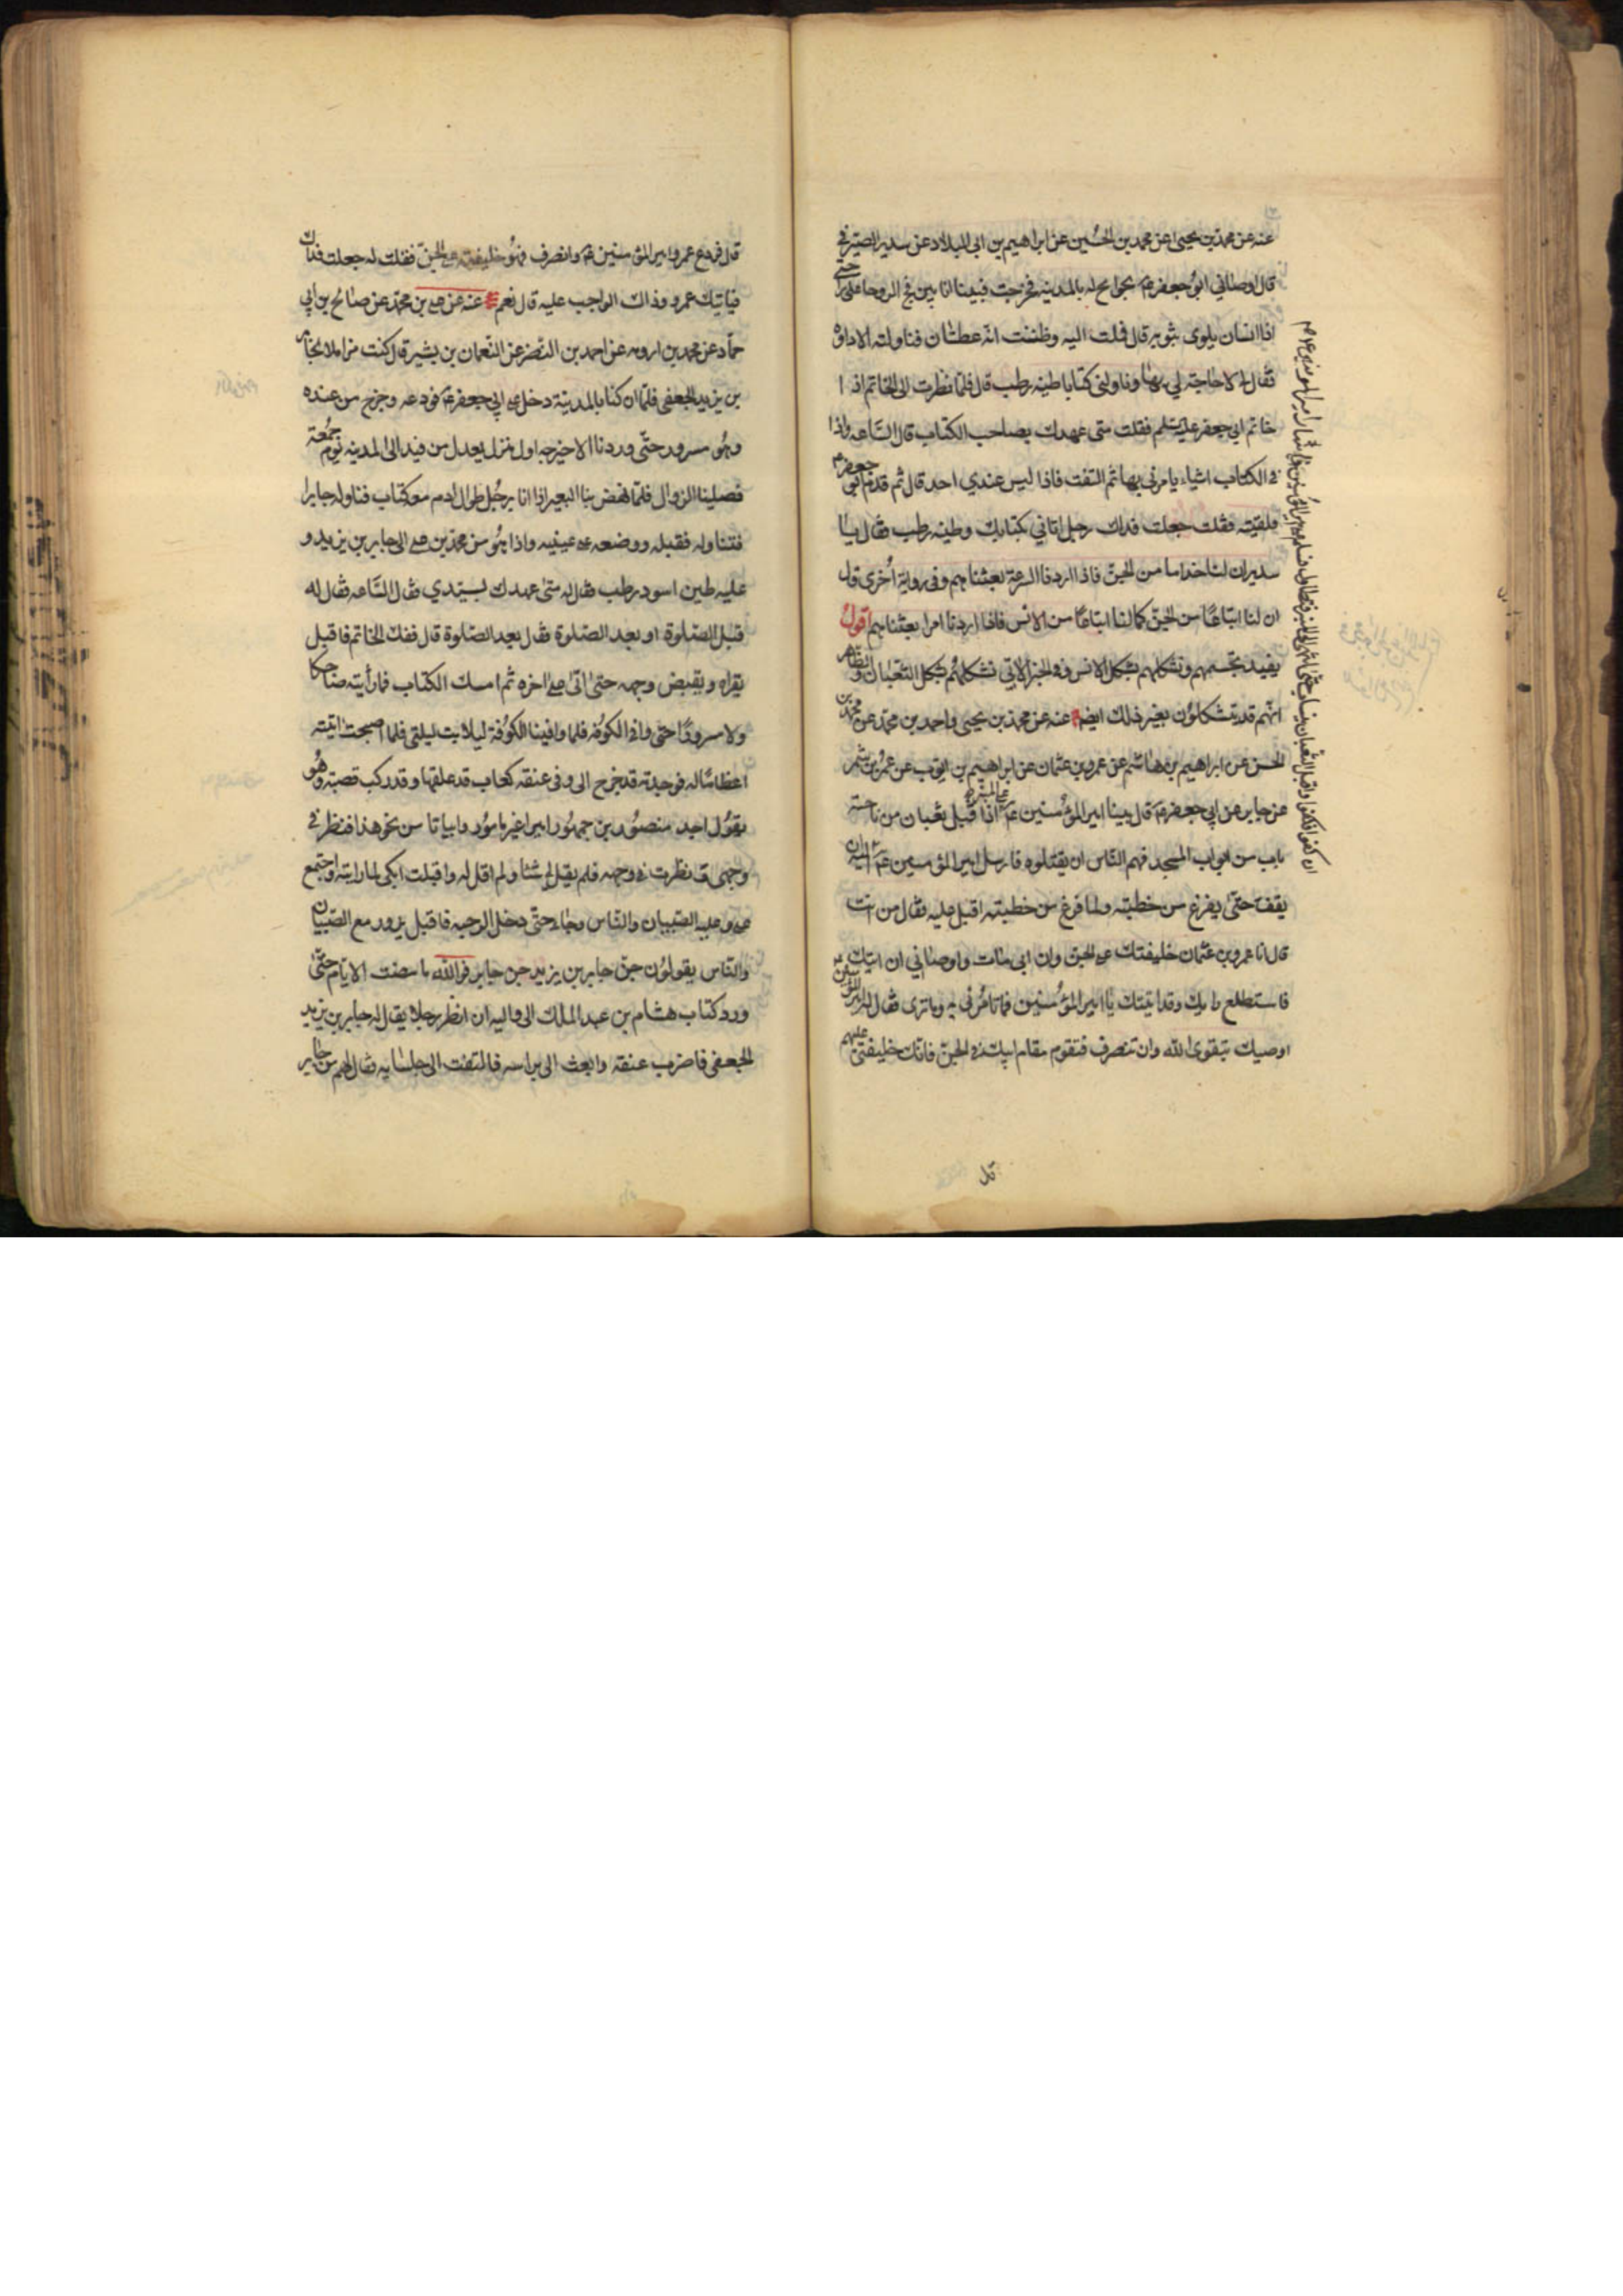 عنه عن محمد بن يحيى عن محمد بن الحسين عن ابراهيم بن ابى البلاد عن سدير الصيرفى
قال اوصانى ابو جعفر ع بحوائج له بالمدينه فخرجت فبينا انا بين فج الروحا على راحلتى
اذا انسان يلوى بثوبه قال فملت اليه وظننت انه عطشان فناولته الاداوه
فقال لى لا حاجة لى بها وناولنى كتابا طينه رطب قال فلما نظرت الى الخاتم اذا
خاتم ابى جعفر عليه السلم فقلت متى عهدك بصاحب الكتاب قال الساعه واذا
فى الكتاب اشياء يامرنى بها ثم التفت فاذا ليس عندى احد قال ثم قدم ابو جعفر ع
فلقيته فقلت جعلت فداك رجل اتانى بكتابك وطينه رطب فقال يا
سدير ان لنا خداما من الجن فاذا اردنا السرعة بعثناهم وفى رواية اخرى قال
ان لنا اتباعا من الجن كما لنا اتباعا من الانس فاذا اردنا امرا بعثناهم اقول
يفيد تجسمهم وتشكلهم بشكل الانس وفى الخبر الاتى تشكلهم بشكل الثعبان والظاهر
انهم قد يتشكلون بغير ذلك ايضا عنه عن محمد بن يحيى واحمد بن محمد عن محمد بن
الحسن عن ابراهيم بن هاشم عن عمرو بن عثمان عن ابراهيم بن ايوب عن عمرو بن شمر
عن جابر عن ابى جعفر ع قال بينا امير المؤمنين ع على المنبر اذ اقبل ثعبان من ناحية
باب من ابواب المسجد فهم الناس ان يقتلوه فارسل امير المؤمنين ع
ان كفوا فكفوا واقبل الثعبان ينساب حتى انتهى الى المنبر فتطاول فسلم على امير المؤمنين ع فاشار امير المؤمنين ع اليه ان
يقف حتى يفرغ من خطبته ولما فرغ من خطبته اقبل عليه فقال من انت
قال انا عمرو بن عثمان خليفتك على الجن وان ابى مات واوصانى ان اتيك
فاستطلع رايك وقد اتيتك يا امير المؤمنين فما تامرنى به وما ترى فقال له امير المؤمنين ع
اوصيك بتقوى الله وان تنصرف فتقوم مقام ابيك فى الجن فانك خليفتى عليهم
قال
قال فودع عمرو امير المؤمنين ع وانصرف فهو خليفته على الجن فقلت له جعلت فداك
فياتيك عمرو وذاك الواجب عليه قال نعم عنه عن على بن محمد عن صالح بن ابى
حماد عن محمد بن ارومه عن احمد بن النضر عن النعمان بن بشير قال كنت مزاملا لجابر
بن يزيد الجعفى فلما ان كنا بالمدينة دخل على ابى جعفر ع فودعه وخرج من عنده
وهو مسرور حتى وردنا الاخيرجه اول منزل يعدل من فيد الى المدينه يوم جمعة
فصلينا الزوال فلما نهض بنا البعير اذا انا برجل طوال ادم معه كتاب فناوله جابرا
فتناوله فقبله ووضعه على عينيه واذا هو من محمد بن على الى جابر بن يزيد و
عليه طين اسود رطب فقال له متى عهدك بسيدي فقال الساعه فقال له
قبل الصلوة او بعد الصلوة فقال بعد الصلوة قال ففك الخاتم فاقبل
يقراه ويقبض وجهه حتى اتى على اخره ثم امسك الكتاب فما رأيته ضاحكا
ولا مسرورا حتى وافى الكوفه فلما وافينا الكوفة ليلا بت ليلتى فلما اصبحت اتيته
اعظاما له فوجدته قد خرج الى وفى عنقه كعاب قد علقها وقد ركب قصبة وهو
يقول اجد منصور بن جمهور اميرا غير مامور وابياتا من نحو هذا فنظر فى
وجهى ونظرت فى وجهه فلم يقل لى شيئا ولم اقل له واقبلت ابكى لما رايته واجتمع
على وعليه الصبيان والناس وجاء حتى دخل الرحبه فاقبل يدور مع الصبيان
والناس يقولون جن جابر بن يزيد جن جابر فوالله ما مضت الايام حتى
ورد كتاب هشام بن عبد الملك الى واليه ان انظر رجلا يقال له جابر بن يزيد
الجعفى فاضرب عنقه وابعث الى براسه فالتفت الى جلسايه فقال لهم من جابر